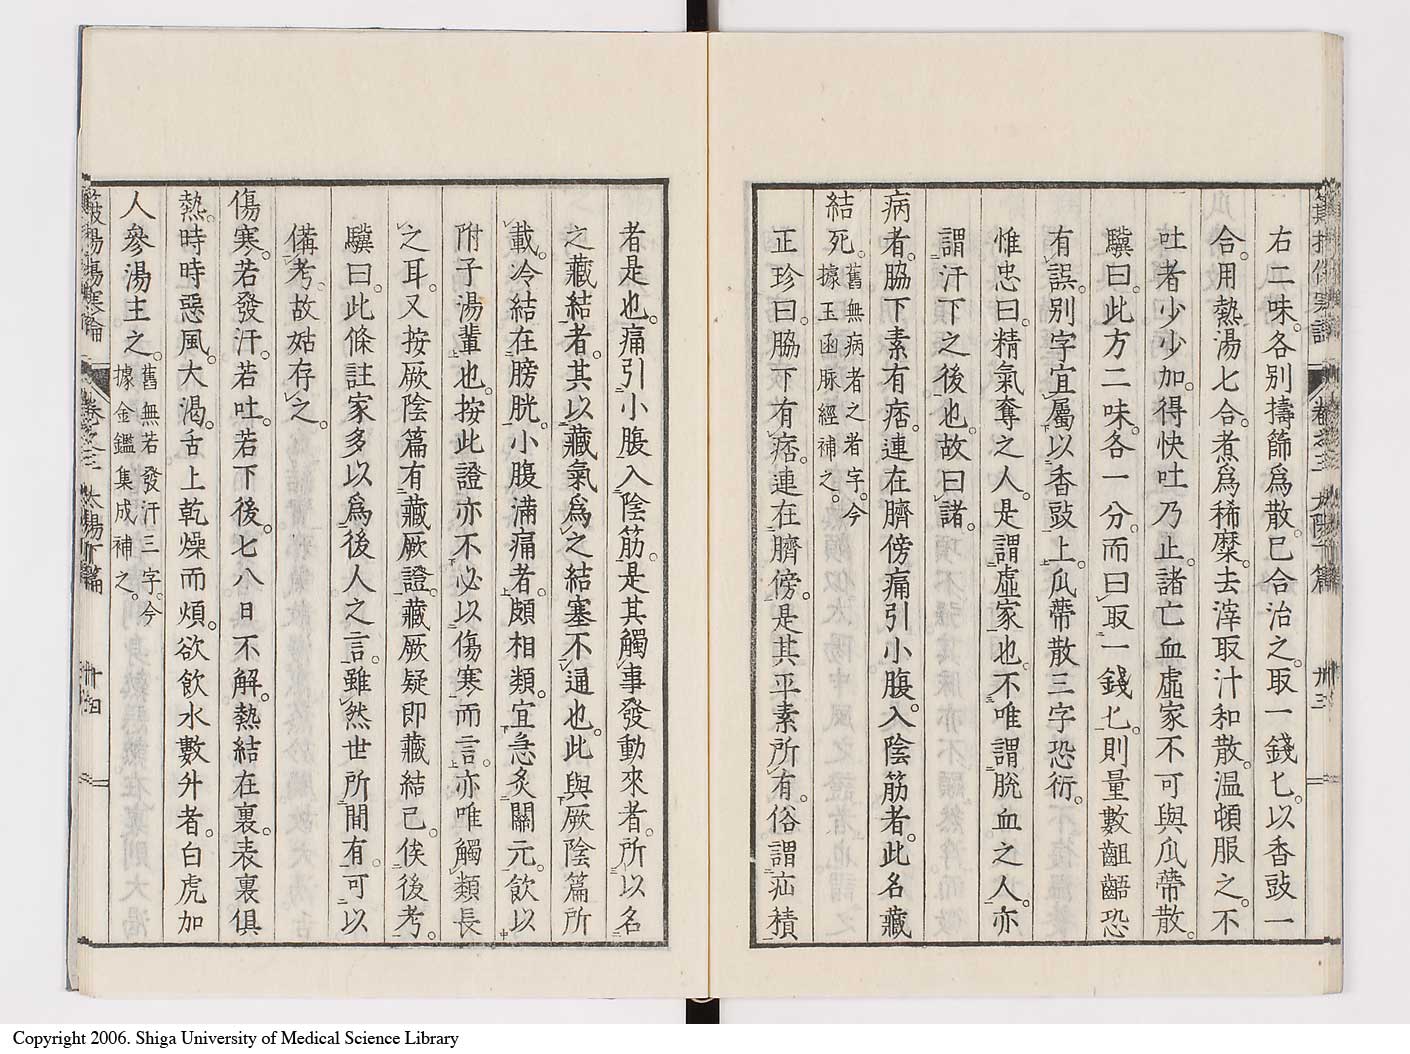 右二味。各別擣篩爲散。已合治之。取一錢匕。以香豉一
合。用熱湯七合。煮爲稀糜。去滓取汁和散。温頓服之。不
吐者少少加。得快吐乃止。諸亡血虛家不可與瓜蒂散。
驥曰。此方二味。各一分。而曰取一錢匕。則量數齟齬。恐
有誤。別字宜屬以香豉上。瓜蒂散三字恐衍。
惟忠曰。精氣奪之人。是謂虛家也。不唯謂脫血之人。亦
謂汗下之後也。故曰諸。
病者。脇下素有痞。連在臍傍。痛引小腹。入陰筋者。此名藏
結。死。舊無病者之者字。今
據玉函脉經補之。
正珍曰。脇下有痞。連在臍傍。是其平素所有。俗謂疝積
者是也。痛引小腹入陰筋。是其觸事發動來者。所以名
之藏結者。其以藏氣爲之結塞不通也。此與厥陰篇所
載。冷結在膀胱。小腹滿痛者。頗相類。宜急灸關元。飲以
附子湯輩也。按此證亦不必以傷寒而言。亦唯觸類長
之耳。又按厥陰篇有藏厥證。藏厥疑即藏結已。俟後考。
驥曰。此條註家多以爲後人之言。雖然世所間有。可以
備考。故姑存之。
傷寒。若發汗。若吐。若下後。七八日不解。熱結在裏。表裏俱
熱。時時惡風。大渴。舌上乾燥而煩。欲飲水數升者。白虎加
人參湯主之。舊無若發汗三字。今
據金鑑集成補之。
卷之三 太陽下篇 卅三
傷寒論 卷之三 太陽下篇 卅四
Copyright 2006. Shiga University of Medical Science Library